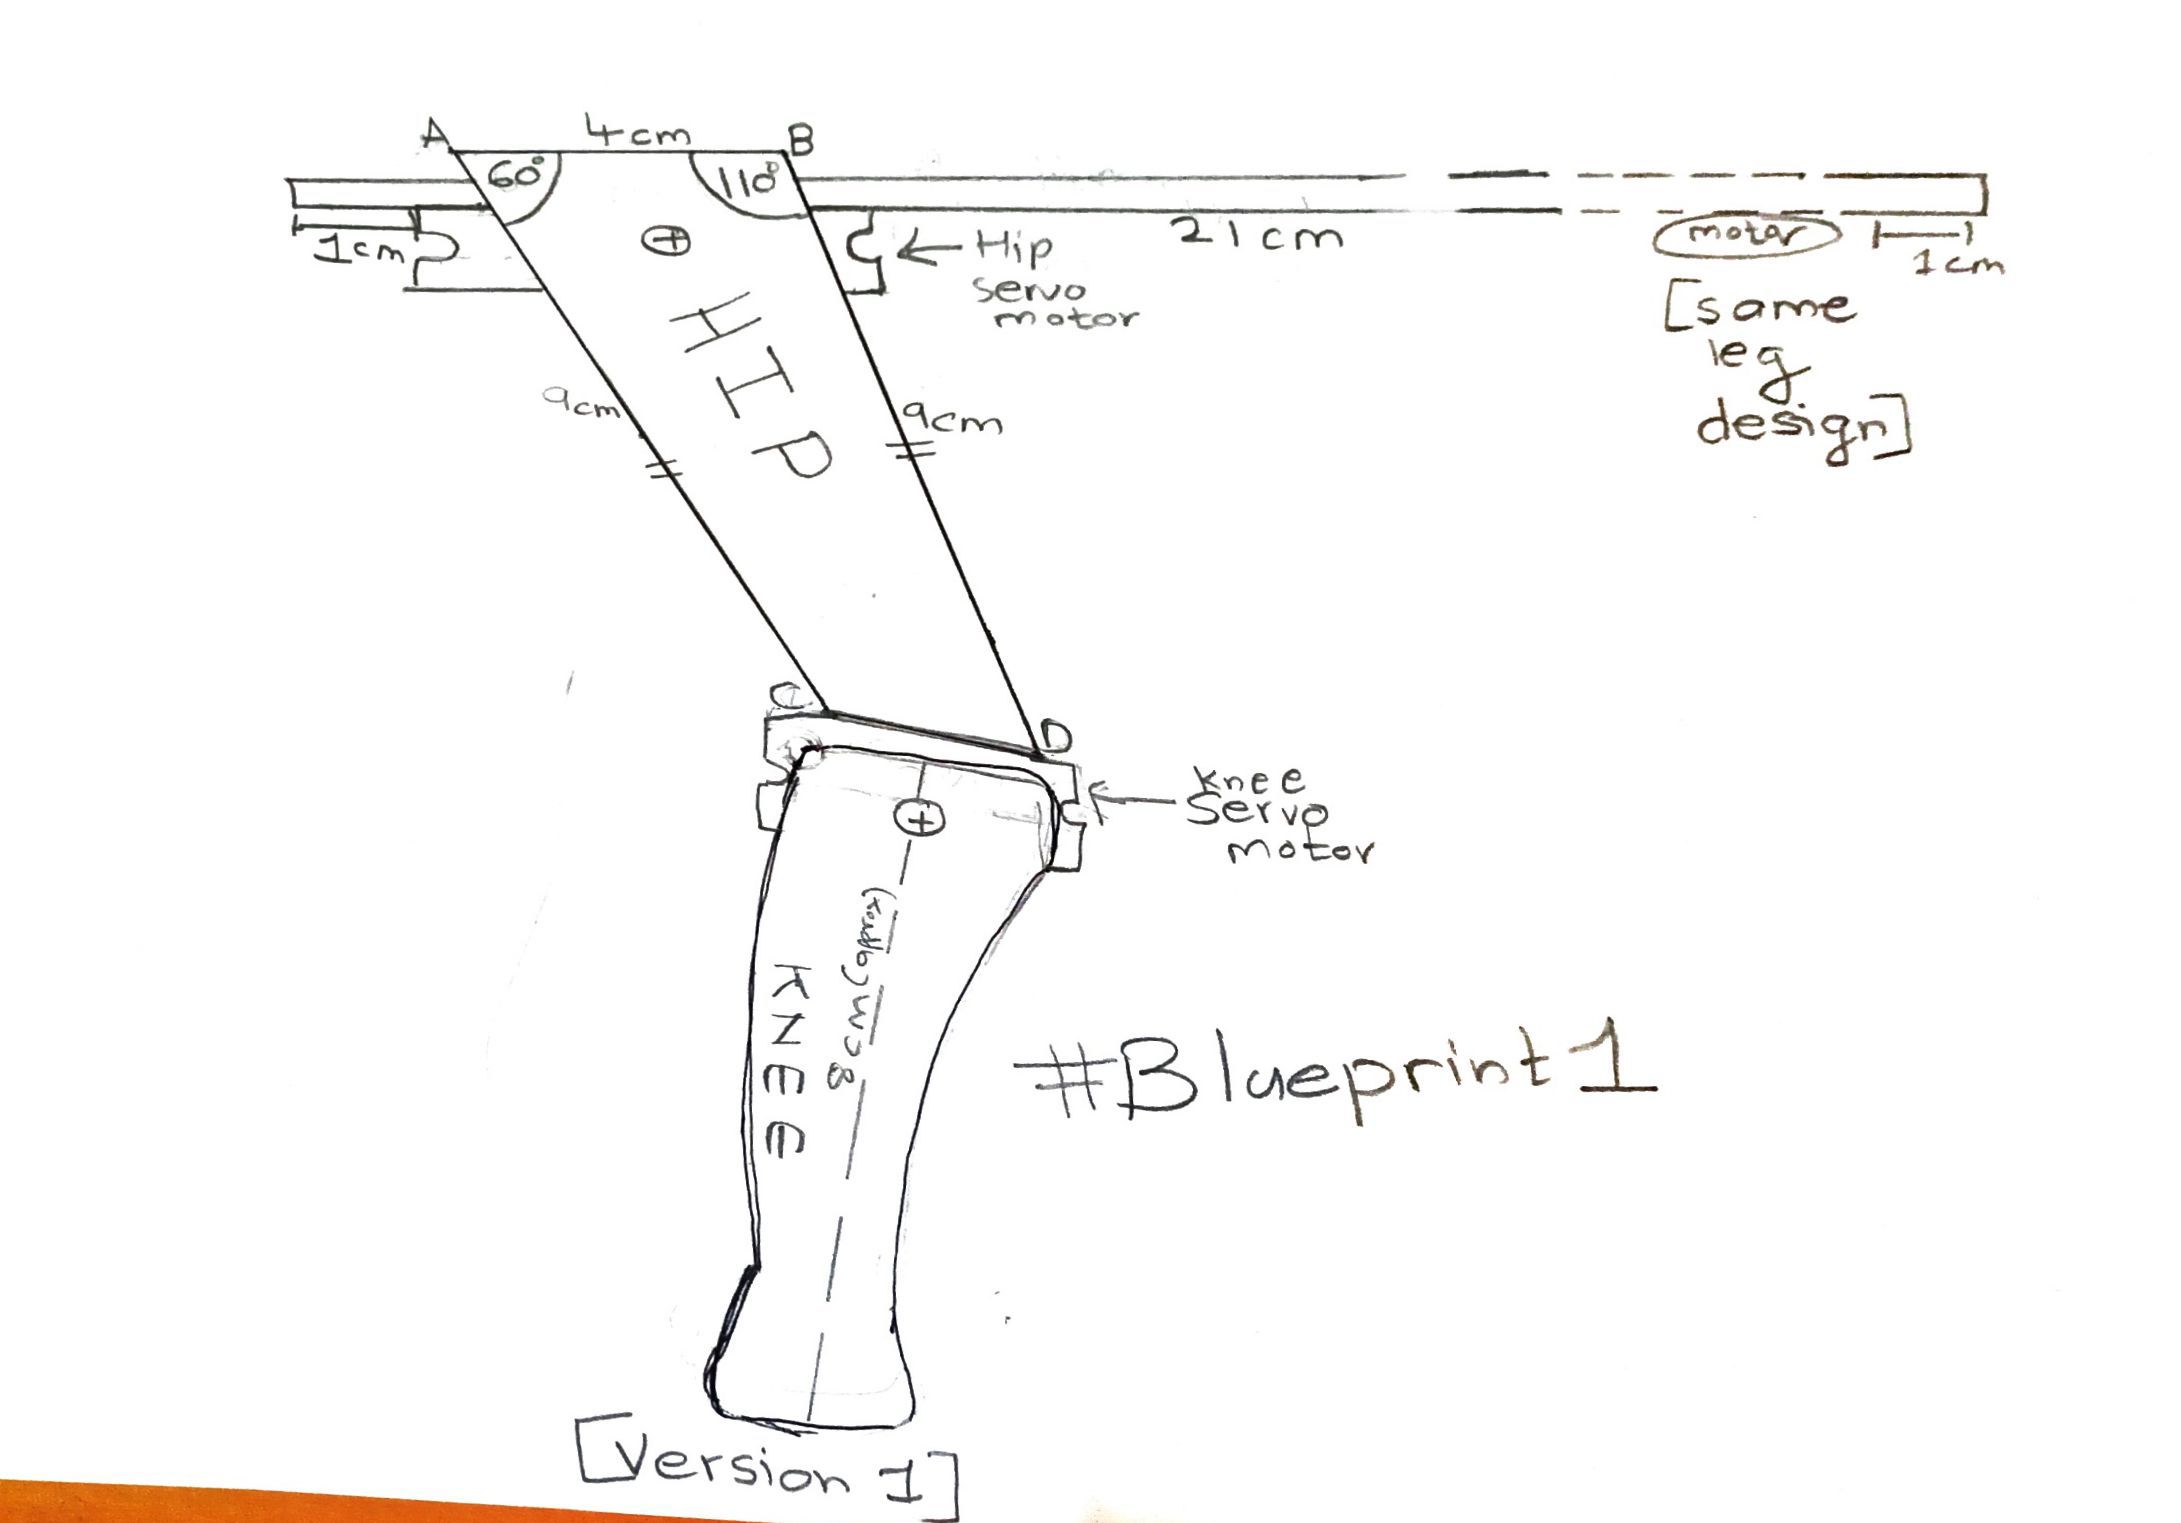 A
4cm
B
60°
110°
1cm
21cm
← Hip
servo
motor
motor
1cm
[same
leg
design]
HIP
9cm
9cm
C
D
Knee
Servo
motor
8cm (approx)
KNEE
#Blueprint1
[Version 1]